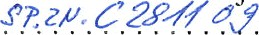 SP.ZN. C 2811 09